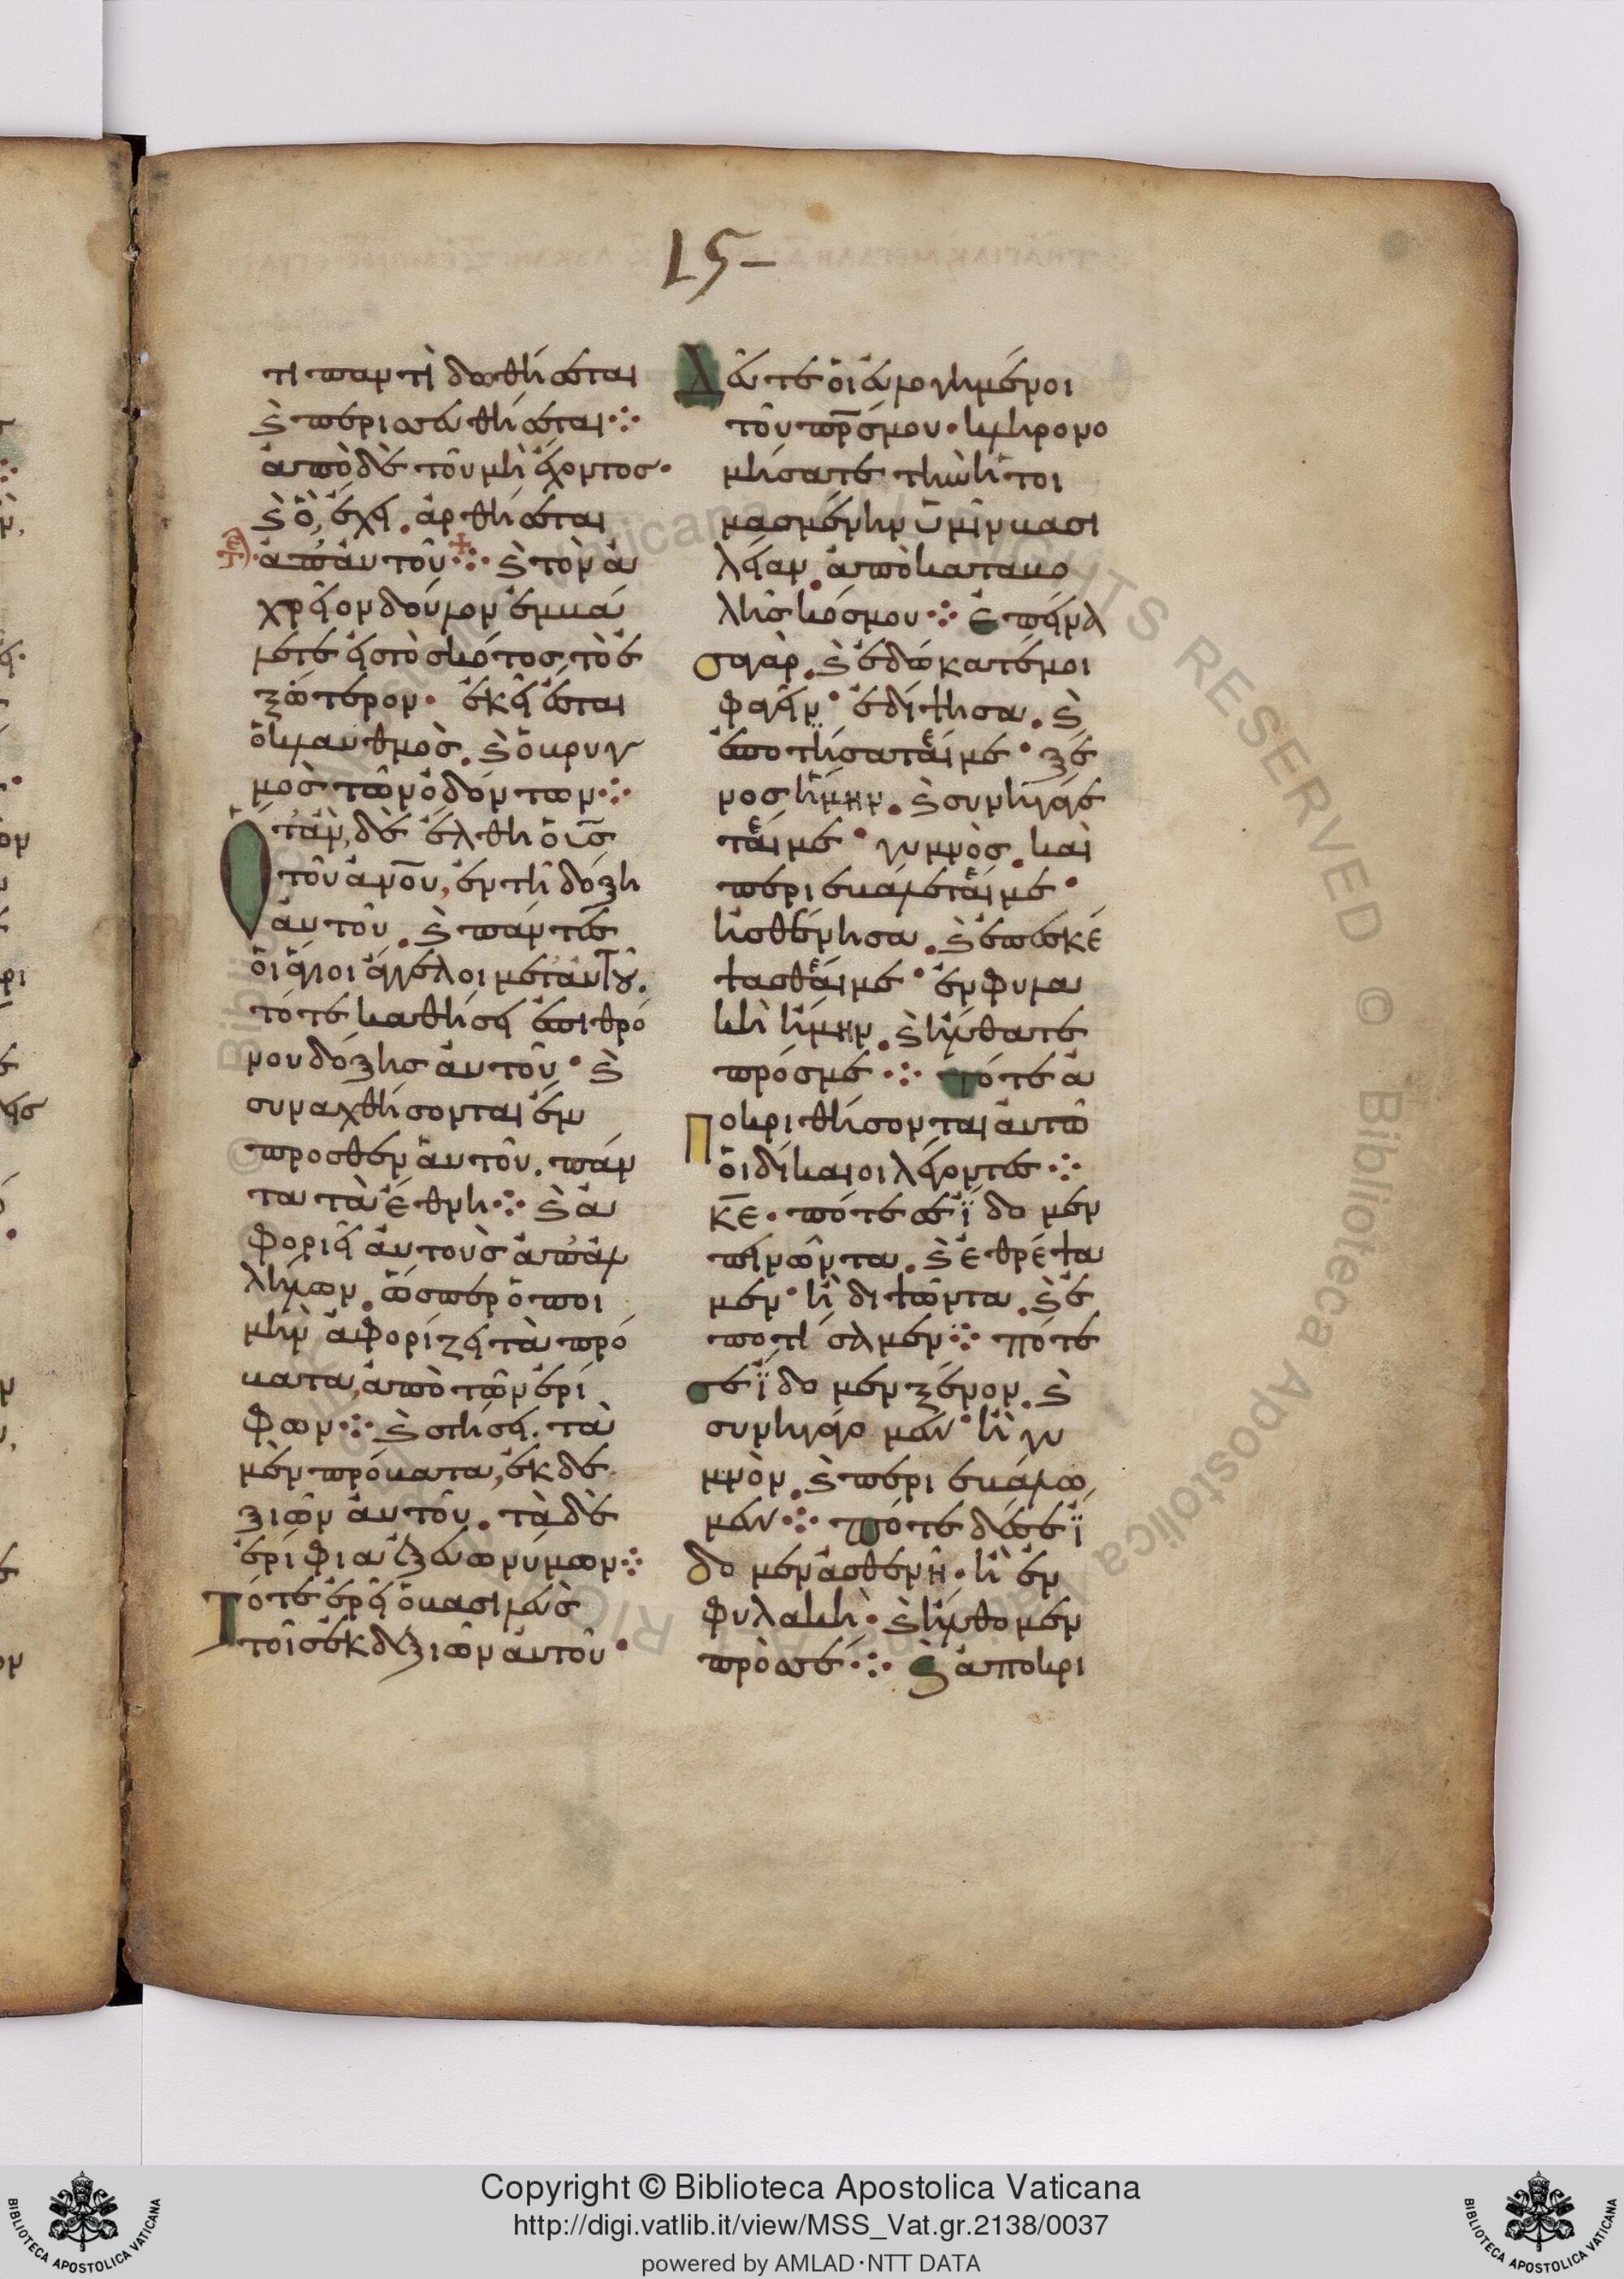 15-
τι παντὶ δοθήσεται
ϗ περισσευθήσεται ⁘
ἀπὸ δὲ τοῦ μὴ ἔχοντος·
ϗ ὃ ἔχει. ἀρθήσεται
ἀπ' αὐτοῦ ⁘ ϗ τὸν ἀ
χρεῖον δοῦλον ἐκβά
λετε εἰς τὸ σκότος, τὸ ἐ
ξώτερον· ἐκεῖ ἔσται
ὁ κλαυθμὸς. ϗ ὁ βρυγ
μὸς τῶν ὀδόντων ⁘
Ὅταν, δὲ ἔλθη ὁ υ̅ς̅
τοῦ ἀν̅ο̅υ̅, ἐν τῆ δόξη
αὐτοῦ. ϗ πάντες
οἱ ἅγιοι ἄγγελοι μετ' αὐτοῦ.
τότε καθίσει ἐπὶ θρό
νου δόξης αὐτοῦ· ϗ
συναχθήσονται ἔμ
προσθεν αὐτοῦ. πάν
τα τὰ ἔθνη ⁘ ϗ ἀ
φοριεῖ αὐτοὺς ἀπ' ἀλ
λήλων. ὥσπερ ὁ ποι
μὴν ἀφορίζει τὰ πρό
βατα, ἀπὸ τῶν ἐρί
φων ⁘ ϗ στήσει. τὰ
μὲν πρόβατα, ἐκ δε
ξιῶν αὐτοῦ. τὰ δὲ
ἐρίφια ἐξ εὐωνύμων ⁘
Τότε ἐρεῖ ὁ βασιλεὺς
τοῖς ἐκ δεξιῶν αὐτοῦ·
Δεῦτε οἱ εὐλογημένοι
τοῦ πρ̅ς̅ μου· κληρονο
μήσατε τὴν ἡτοι
μασμένην ὑμῖν βασι
λείαν. ἀπὸ καταβο
λῆς κόσμου ⁘ ἐπείνα
σα γὰρ. ϗ ἐδώκατέ μοι
φαγεῖν· ἐδίψησα. ϗ
ἐποτίσαταί με· ξέ
νος ἤμην. ϗ συνηγάγε
ταί με· γυμνὸς. καὶ
περιεβάλεταί με·
ἠσθένησα. ϗ ἐπεσκέ
ψασθαί με· ἐν φυλα
κῆ ἤμην. ϗ ἤλθατε
πρός με ⁘ τότε ἀ
ποκριθήσονται αὐτῶ
οἱ δίκαιοι λέγοντες ⁘
κ̅ε̅. πότε σε ἴδομεν
πινῶντα. ϗ ἐθρέψα
μεν· ἢ διψῶντα. ϗ ἐ
ποτίσαμεν ⁘ πότε
σε ἴδομεν ξένον. ϗ
συνηγάγομεν· ἢ γυ
μνὸν. ϗ περιεβάλω
μεν ⁘ πότε δέ σε ἴ
δομεν ἀσθενῆ. ἢ ἐν
φυλακῆ. ϗ ἤλθομεν
πρὸς σέ ⁘ ϗ ἀποκρι
Copyright © Biblioteca Apostolica Vaticana
http://digi.vatlib.it/view/MSS_Vat.gr.2138/0037
powered by AMLAD·NTT DATA
BIBLIOTECA APOSTOLICA VATICANA
BIBLIOTECA APOSTOLICA VATICANA